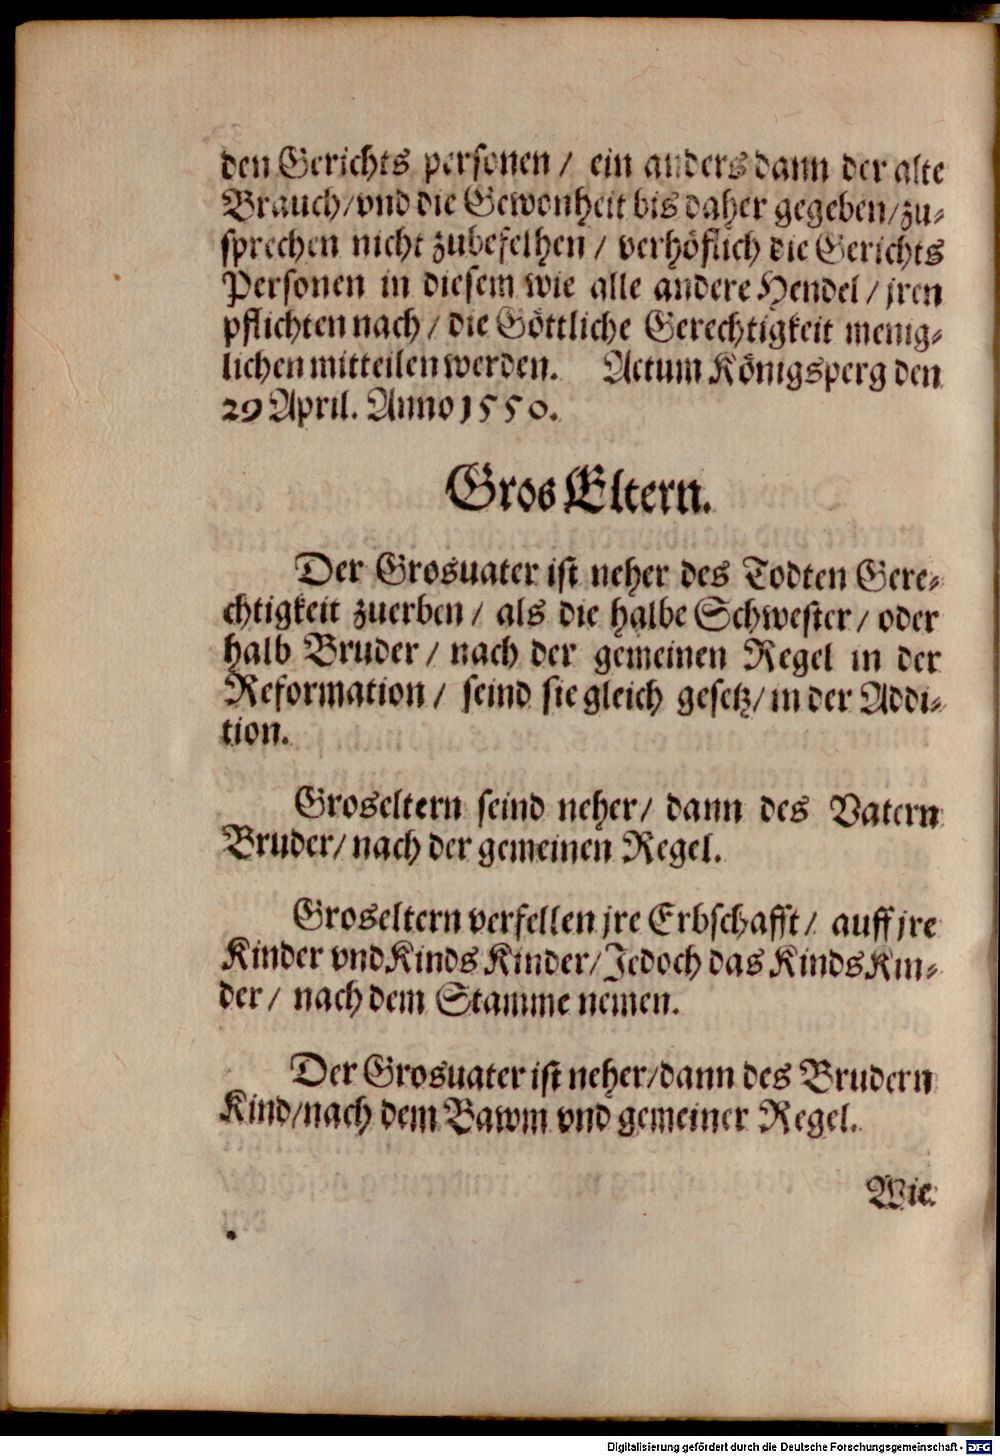 den Gerichts personen / ein anders dann der alte
Brauch/vnd die Gewonheit bis daher gegeben/zu-
sprechen nicht zubefelhen / verhöflich die Gerichts
Personen in diesem wie alle andere Hendel / jren
pflichten nach / die Göttliche Gerechtigkeit menig-
lichen mitteilen werden. Actum Königsperg den
29 April. Anno 1550.
Gros Eltern.
Der Grosuater ist neher des Todten Gere-
chtigkeit zuerben / als die halbe Schwester / oder
halb Bruder / nach der gemeinen Regel in der
Reformation / seind sie gleich gesetz/ in der Addi-
tion.
Groseltern seind neher/ dann des Vatern
Bruder/ nach der gemeinen Regel.
Groseltern verfellen jre Erbschafft / auff jre
Kinder vnd Kinds Kinder/ Jedoch das Kinds Kin-
der / nach dem Stamme nemen.
Der Grosuater ist neher/dann des Brudern
Kind/nach dem Bawm vnd gemeiner Regel.
Wie
Digitalisierung gefördert durch die Deutsche Forschungsgemeinschaft - DFG